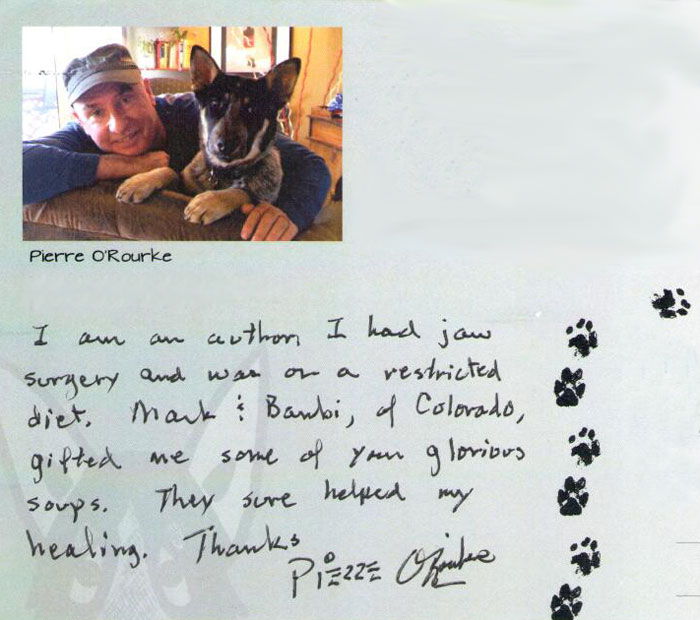 Pierre O'Rourke
I am an author, I had jaw
surgery and was on a restricted
diet. Mark & Bambi, of Colorado,
gifted me some of your glorious
soups. They sure helped my
healing. Thanks
Pierre O'Rourke